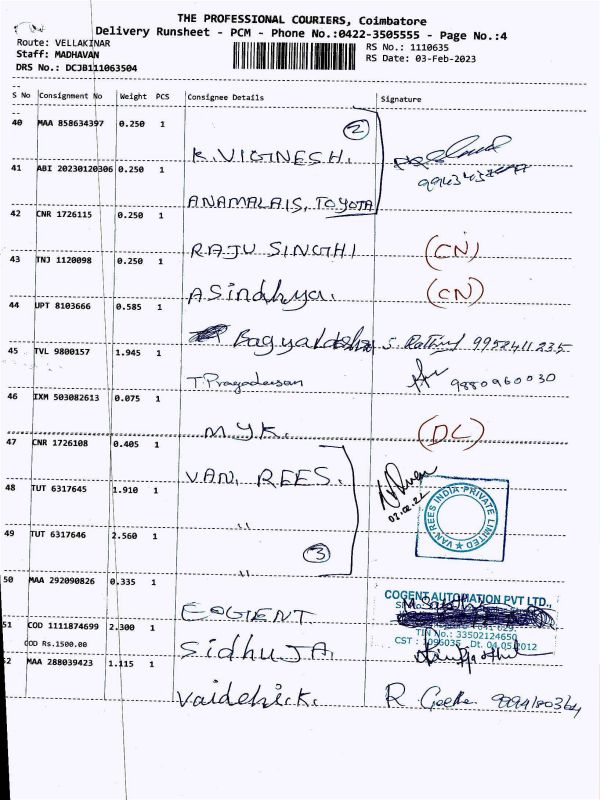 THE PROFESSIONAL COURIERS, Coimbatore
Delivery Runsheet - PCM - Phone No.:0422-3505555 - Page No.:4
Route: VELLAKINAR
RS No.: 1110635
Staff: MADHAVAN
RS Date: 03-Feb-2023
DRS No.: DCJB111063504
S No Consignment No Weight PCS Consignee Details Signature
40 MAA 858634397 0.250 1
2
K. VIGINESH.
41 ABI 20230120306 0.250 1
ANAMALAIS, TOYOTA
42 CNR 1726115 0.250 1
RAJU SINGHI (CN)
43 TNJ 1120098 0.250 1
A Sindhya. (CN)
44 UPT 8103666 0.585 1
S. 9952411235
45 TVL 9800157 1.945 1
T. Pragadeesan 9880960030
46 IXM 503082613 0.075 1
M.Y.K. (DC)
47 CNR 1726108 0.405 1
VAN. REES.
48 TUT 6317645 1.910 1
"
VAN-REES INDIA PRIVATE LIMITED
49 TUT 6317646 2.560 1
3
"
50 MAA 292090826 0.335 1
COGENT AUTOMATION PVT LTD.,
EOGIENT
51 COD 1111874699 2.300 1
TIN No.: 33502124650
COD Rs.1500.00
CST : 1096035 Dt. 04.05.2012
SidhuJA.
52 MAA 288039423 1.115 1
Vaidehi.K. R Geetha